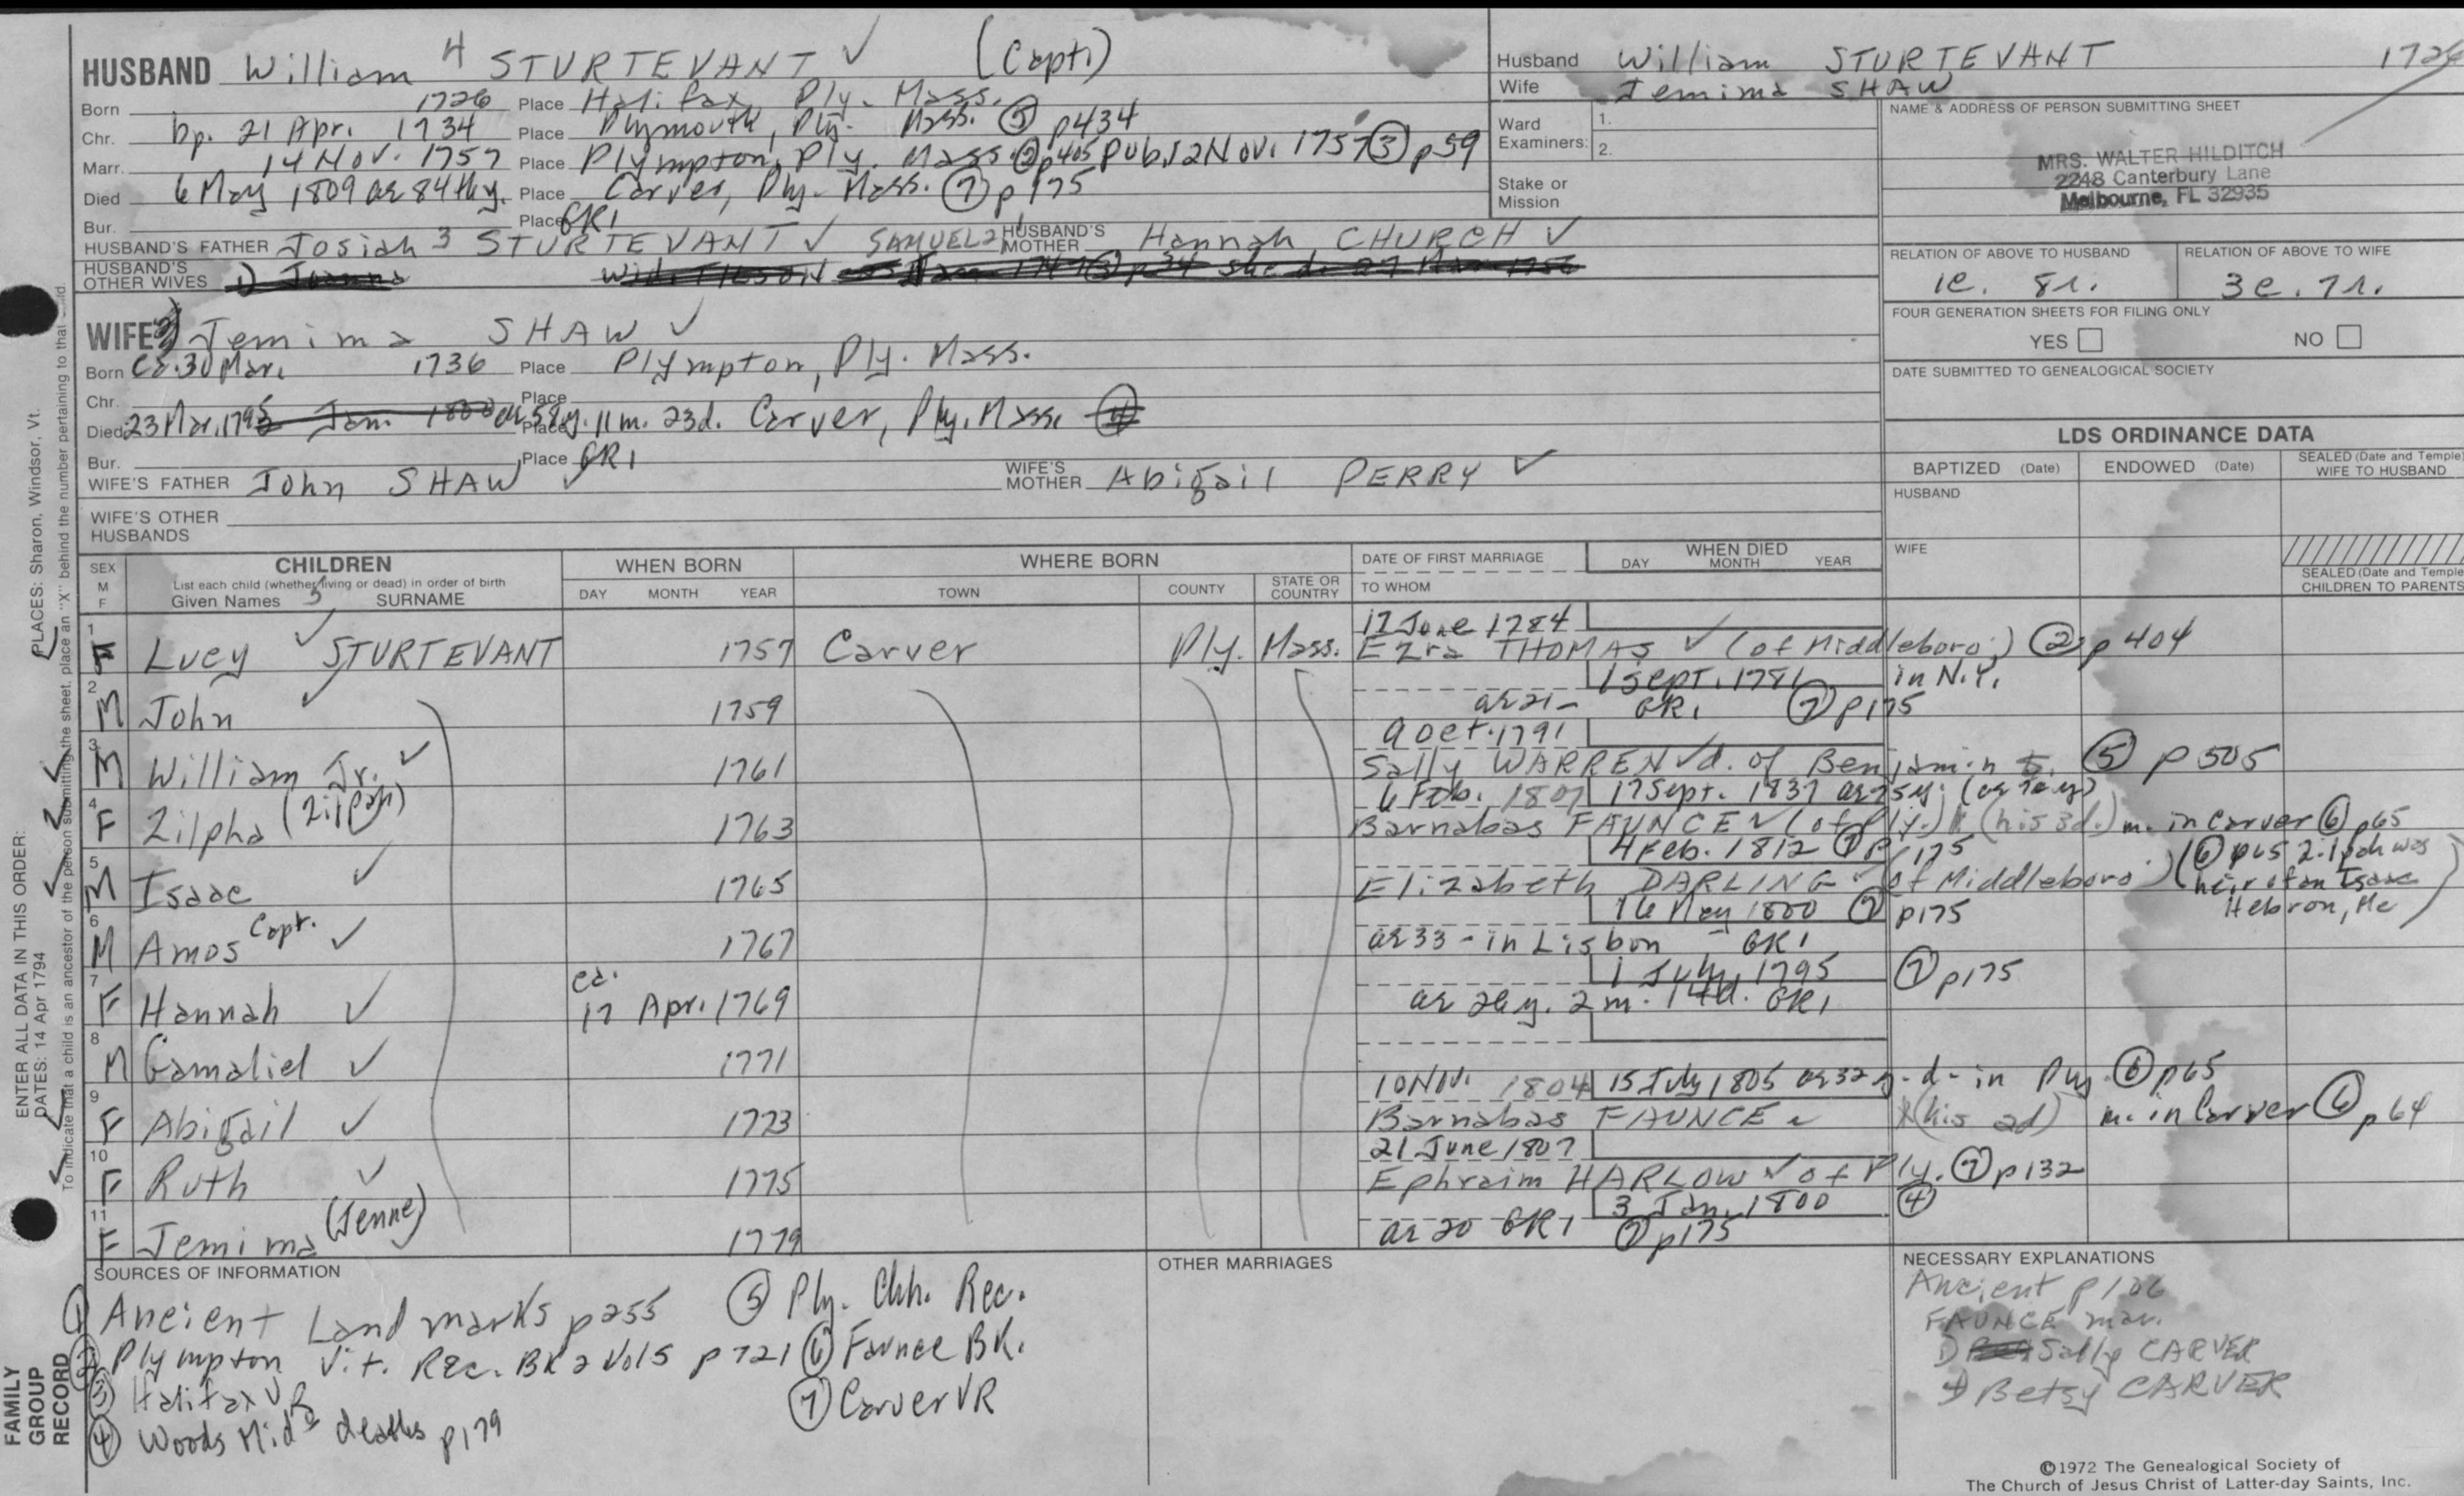 HUSBAND William 4 STURTEVANT ✓ (Capt.)
Born 1726 Place Halifax, Ply. Mass.
Chr. bp. 21 Apr. 1734 Place Plymouth, Ply. Mass. ⑤ p434
Marr. 14 Nov. 1757 Place Plympton, Ply. Mass. ② p405 Pub. 12 Nov. 1757 ③ p59
Died 6 May 1809 ae 84thy. Place Carver, Ply. Mass. ⑦ p175
Bur. Place GR1
HUSBAND'S FATHER Josiah 3 STURTEVANT ✓ SAMUEL2 HUSBAND'S MOTHER Hannah CHURCH ✓
HUSBAND'S OTHER WIVES 1) Joanna
WIFE 2) Jemima SHAW ✓
Born Ca. 30 Mar. 1736 Place Plympton, Ply. Mass.
Chr. Place
Died 23 Mar. 1795 Jan. 1800 ae 58y. 11m. 23d. Place Carver, Ply. Mass. ④
Bur. Place GR1
WIFE'S FATHER John SHAW ✓ WIFE'S MOTHER Abigail PERRY ✓
WIFE'S OTHER HUSBANDS
Husband William STURTEVANT 1726
Wife Jemima SHAW
Ward Examiners: 1. 2.
Stake or Mission
NAME & ADDRESS OF PERSON SUBMITTING SHEET
MRS. WALTER HILDITCH
2248 Canterbury Lane
Melbourne, FL 32935
RELATION OF ABOVE TO HUSBAND RELATION OF ABOVE TO WIFE
1c. 8r. 3c. 7r.
FOUR GENERATION SHEETS FOR FILING ONLY
YES NO
DATE SUBMITTED TO GENEALOGICAL SOCIETY
LDS ORDINANCE DATA
BAPTIZED (Date) ENDOWED (Date) SEALED (Date and Temple) WIFE TO HUSBAND
HUSBAND
WIFE
SEALED (Date and Temple) CHILDREN TO PARENTS
SEX M F CHILDREN WHEN BORN WHERE BORN DATE OF FIRST MARRIAGE WHEN DIED
List each child (whether living or dead) in order of birth
Given Names 5 SURNAME DAY MONTH YEAR TOWN COUNTY STATE OR COUNTRY TO WHOM DAY MONTH YEAR
17 June 1784
1 F Lucy ✓ STURTEVANT 1757 Carver Ply. Mass. Ezra THOMAS ✓ (of Middleboro;) ② p404
1 Sept. 1781 in N.Y.
2 M John ✓ 1759 ae 21- GR1 ⑦ p175
9 Oct. 1791
3 M William Jr. ✓ 1761 Sally WARREN ✓ d. of Benjamin ⑤ p505
6 Feb. 1807 17 Sept. 1837 ae 75y.
4 F Zilpha (Zilpah) 1763 Barnabas FAUNCE ✓ (of Ply.) (his 3d.) m. in Carver ⑥ p65
4 Feb. 1812 ⑦ p175
5 M Isaac ✓ 1765 Elizabeth DARLING (of Middleboro.) (⑥ p65 Zilpah was heir of an Isaac Hebron, Me)
16 May 1800 ⑦ p175
6 M Amos Capt. ✓ 1767 ae 33 - in Lisbon GR1
1 July 1795 ⑦ p175
7 F Hannah ✓ ca. 17 Apr. 1769 ae 26y. 2m. 14d. GR1
8 M Gamaliel ✓ 1771
10 Nov. 1804 15 July 1805 ae 32y. - d - in Ply. ⑥ p65
9 F Abigail ✓ 1773 Barnabas FAUNCE (his 2d) m. in Carver ⑥ p64
21 June 1807
10 F Ruth ✓ 1775 Ephraim HARLOW ✓ of Ply. ⑦ p132
3 Jan. 1800 ④
11 F Jemima (Jenne) 1779 ae 20 GR1 ⑦ p175
SOURCES OF INFORMATION
① Ancient Landmarks p255
② Plympton Vit. Rec. BK 2 Vol 5 p721
③ Halifax VR
④ Woods Mid. deaths p179
⑤ Ply. Chh. Rec.
⑥ Faunce BK.
⑦ Carver VR
OTHER MARRIAGES
NECESSARY EXPLANATIONS
Ancient p106
FAUNCE mar.
1) Sally CARVER
4) Betsy CARVER
©1972 The Genealogical Society of
The Church of Jesus Christ of Latter-day Saints, Inc.
ENTER ALL DATA IN THIS ORDER:
DATES: 14 Apr 1794
PLACES: Sharon, Windsor, Vt.
To indicate that a child is an ancestor of the person submitting the sheet, place an "X" behind the number pertaining to that child.
FAMILY GROUP RECORD